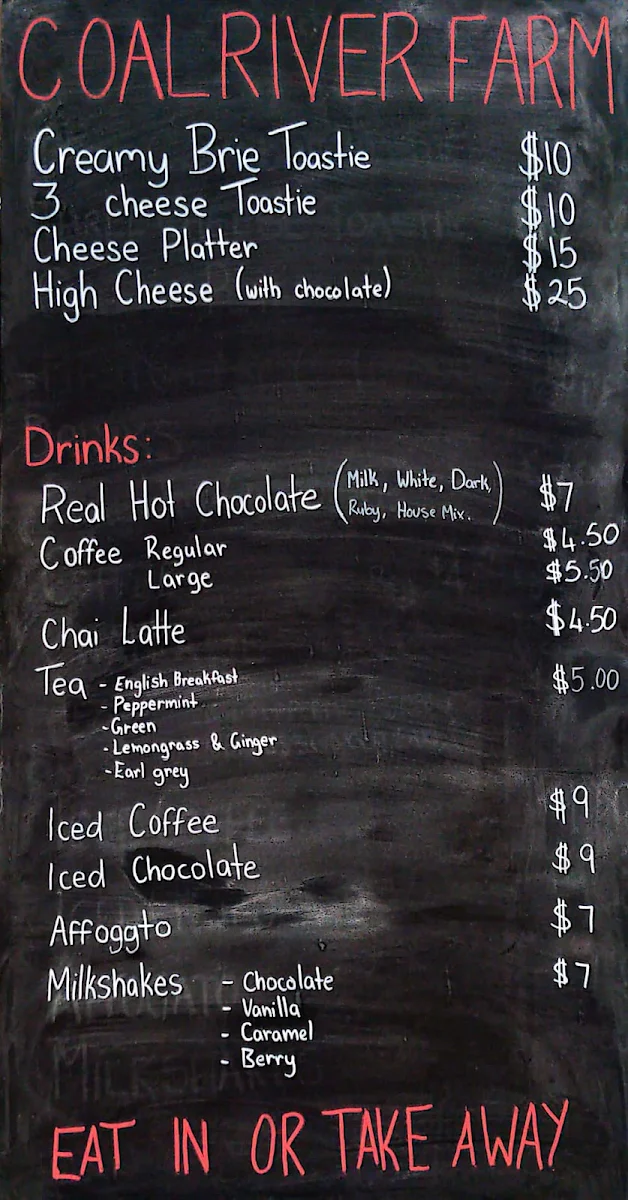 COAL RIVER FARM
Creamy Brie Toastie $10
3 cheese Toastie $10
Cheese Platter $15
High Cheese (with chocolate) $25
Drinks:
Real Hot Chocolate (Milk, White, Dark, Ruby, House Mix.) $7
Coffee Regular $4.50
Large $5.50
Chai Latte $4.50
Tea - English Breakfast $5.00
- Peppermint
- Green
- Lemongrass & Ginger
- Earl grey
Iced Coffee $9
Iced Chocolate $9
Affoggto $7
Milkshakes - Chocolate $7
- Vanilla
- Caramel
- Berry
EAT IN OR TAKE AWAY